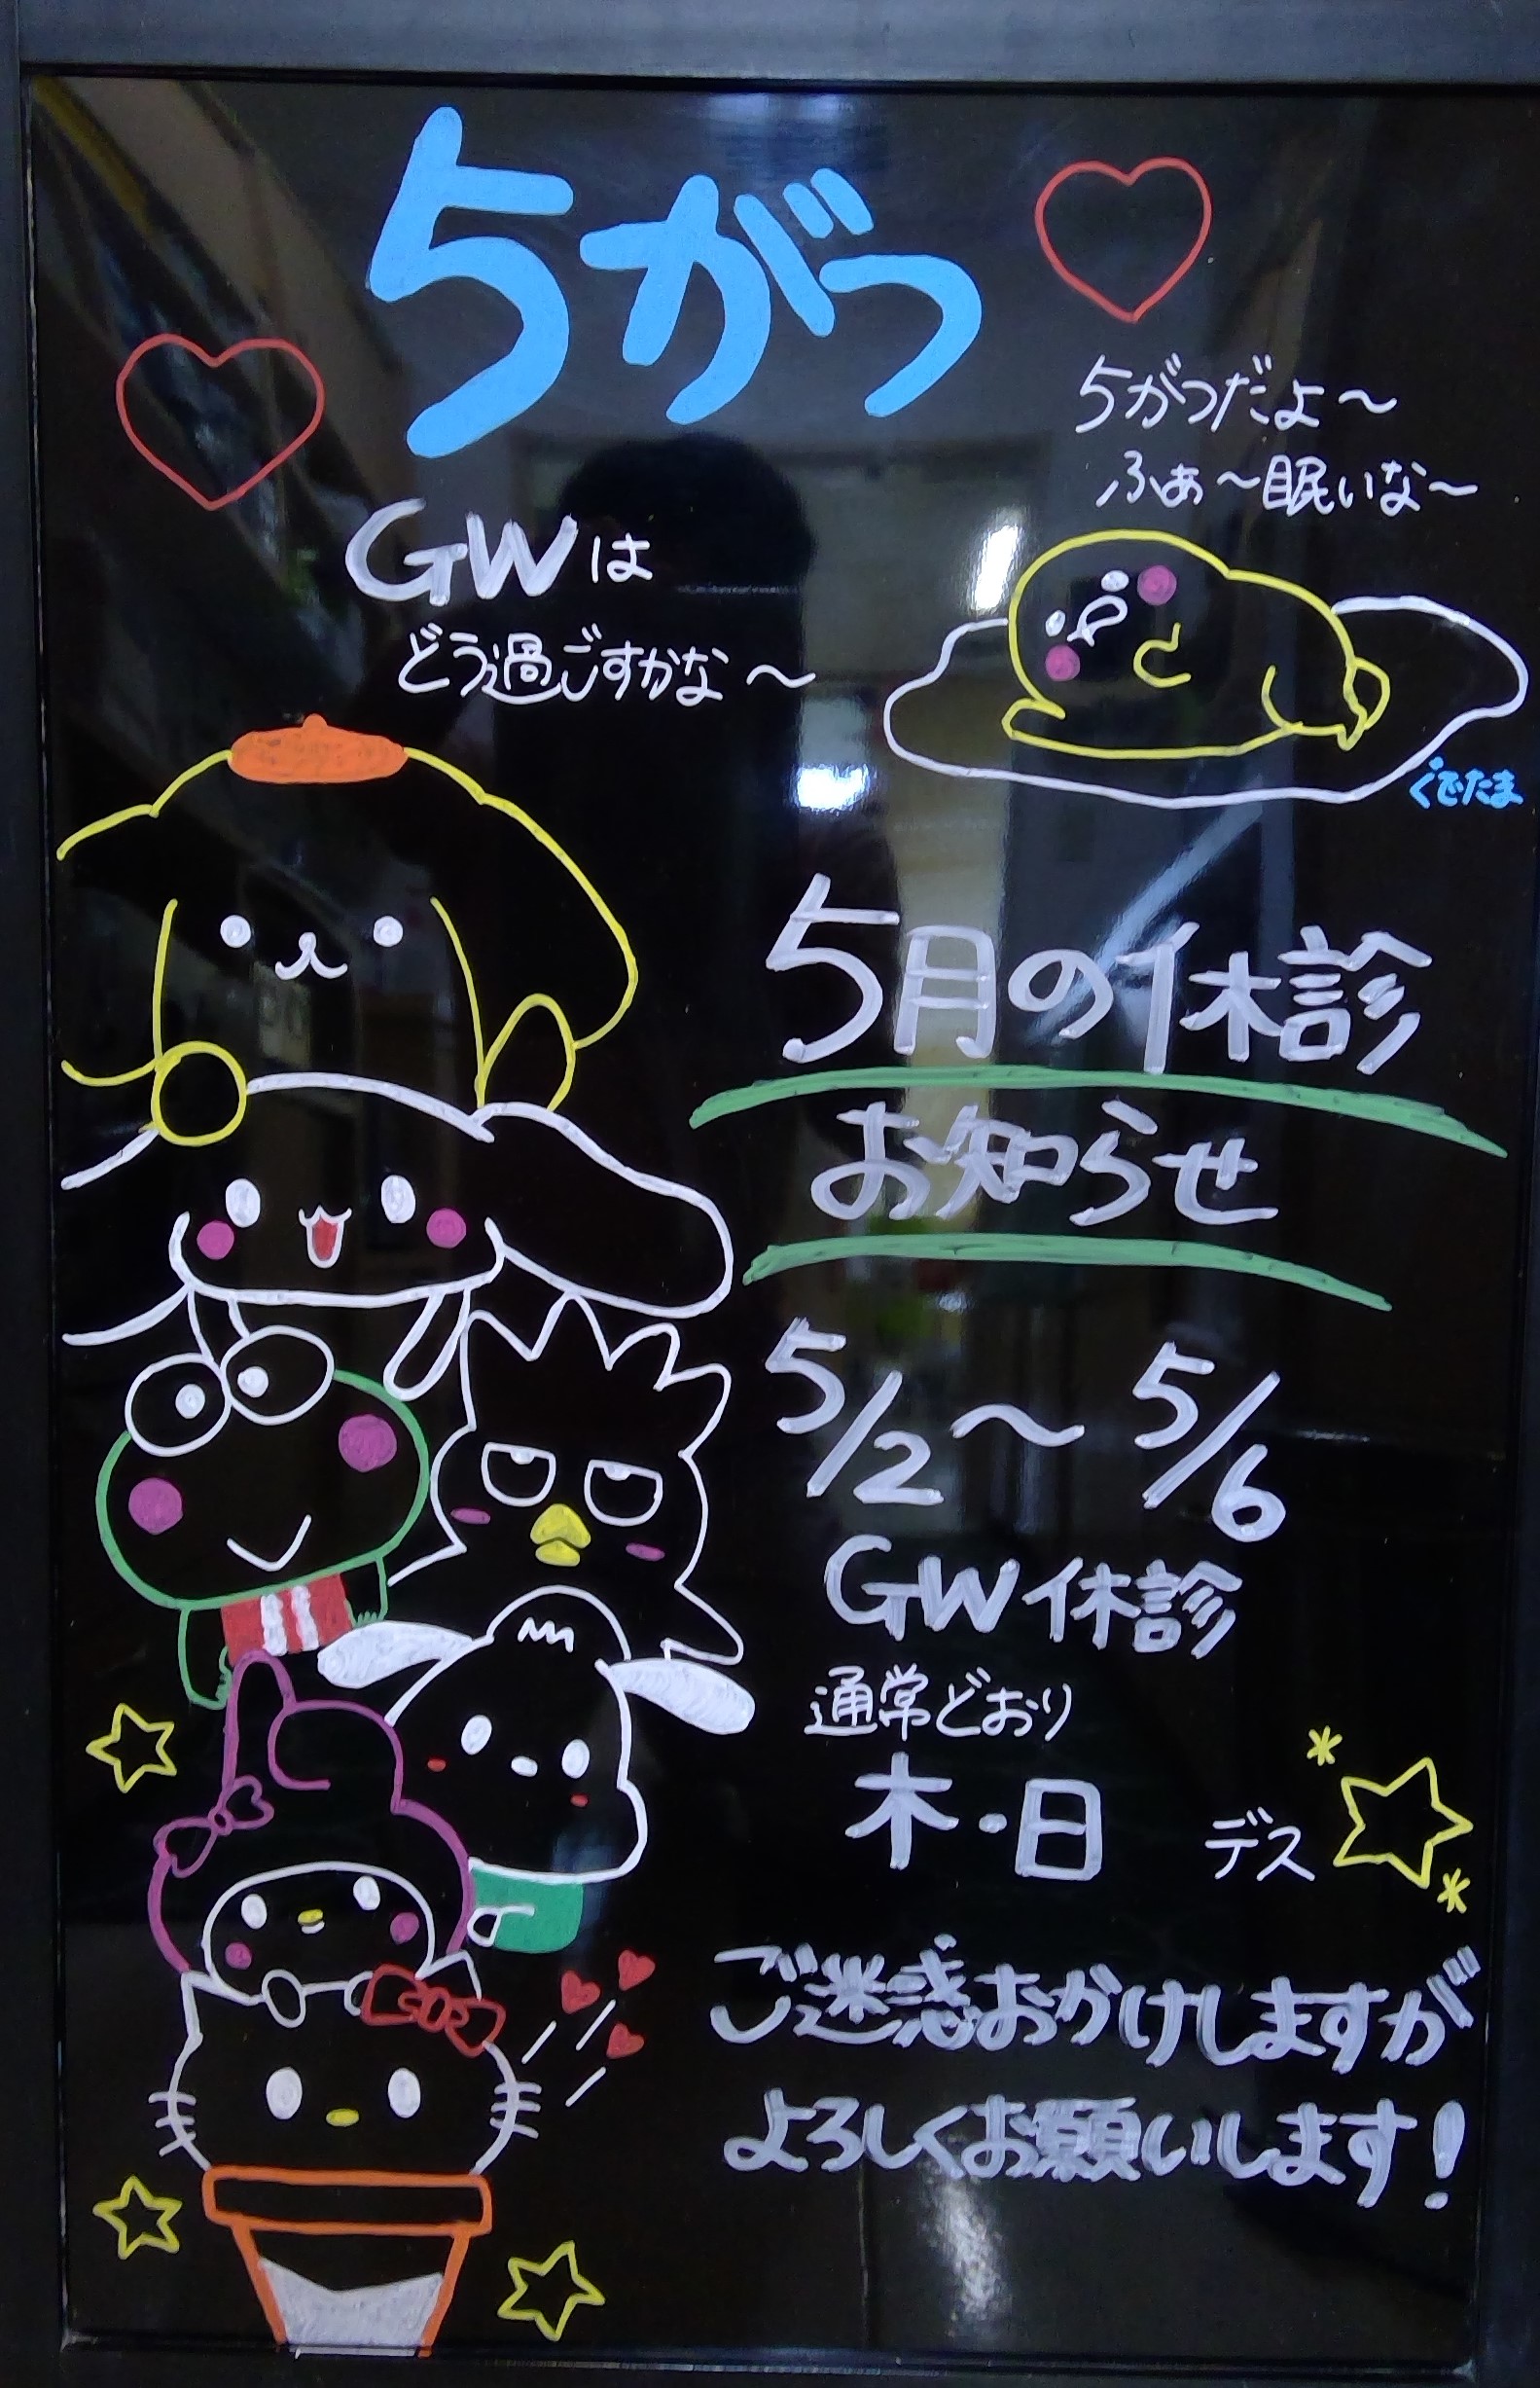 5がつ
5がつだよ～
ふぁ～眠いな～
GWは
どう過ごすかな～
ぐでたま
5月の休診
お知らせ
5/2～5/6
GW休診
通常どおり
木・日 デス
ご迷惑おかけしますが
よろしくお願いします!